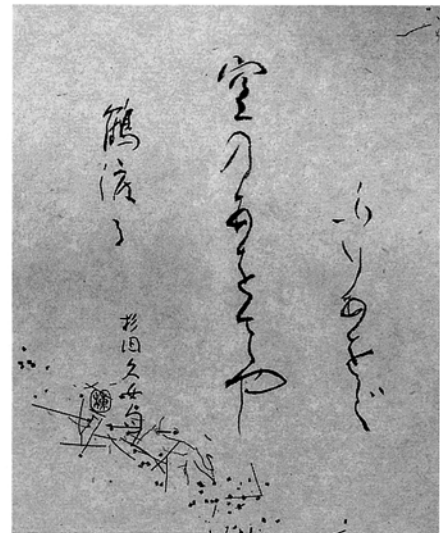 ふりあをぐ
空のあをさや
鶴渡る
杉田久女